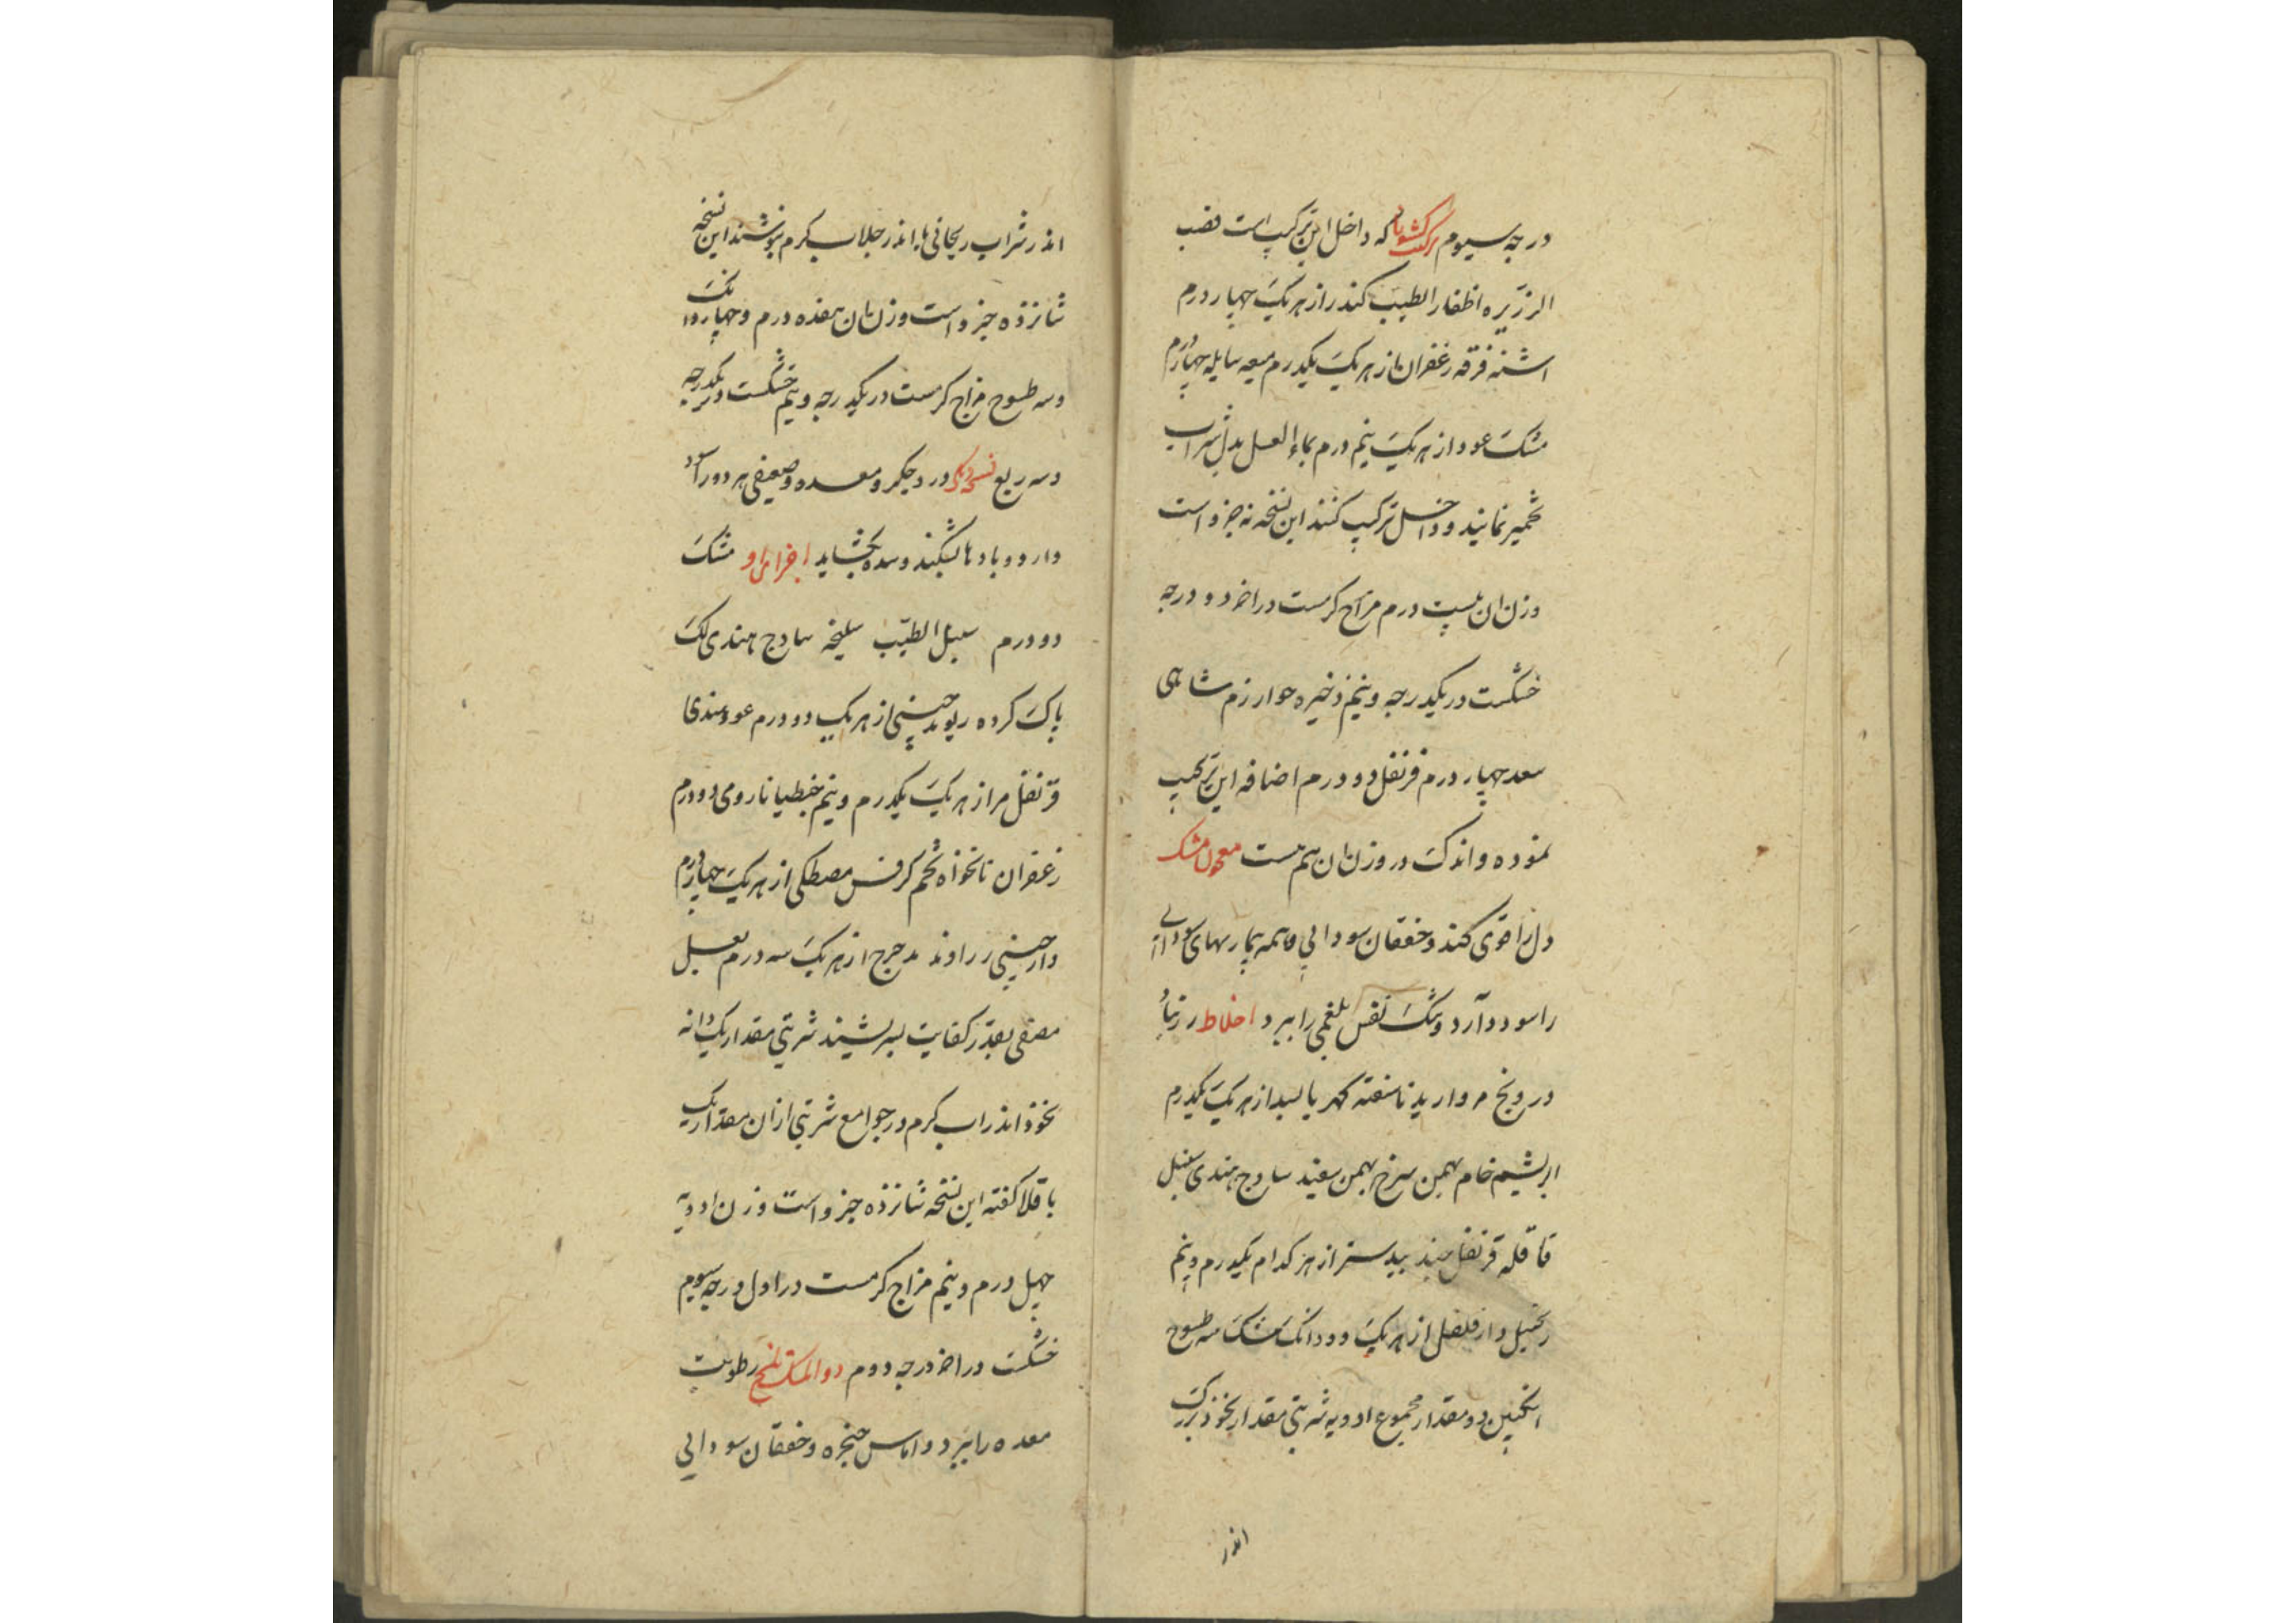 درجه سیوم ترکیب کشوباد که داخل این ترکیب است قصب
الزریره اظفار الطیب کندر از هر یک چهار درم
اشنه قرفه زعفران از هر یک یکدرم میعه سایله چهار درم
مشک عود از هر یک نیم درم بماء العسل بدل شراب
تخمیر نمایند و داخل ترکیب کنند این نسخه نه جزو است
وزن ان بیست درم مزاج کرمست در اخر دو درجه
خشکست در یکدرجه و نیم ذخیره خوارزم شاهی
سعد چهار درم قرنفل دو درم اضافه این ترکیب
نموده و اندک در وزن ان هم هست معجون مشک
دل را قوی کند و خفقان سودایی و همه بیماریهای سودایی
را سود دارد و تنک نفس بلغمی را ببرد اخلاط زرنباد
درونج مروارید ناسفته کهربا بسد از هر یک یکدرم
ابریشم خام بهمن سرخ بهمن سفید سادج هندی سنبل
قاقله قرنفل جند بیدستر از هر کدام یکدرم و نیم
زنجبیل دارفلفل از هر یک دو دانک مشک سه طسوج
انکبین دو مقدار مجموع ادویه شربتی مقدار نخود بزرک
اندر
اندر شراب ریحانی یا اندر جلاب کرم بنوشند این نسخه
شانزده جزو است وزن ان هفده درم و چهار دانک
و سه طسوج مزاج کرمست در یکدرجه و نیم خشکست در یکدرجه
و سه ربع نسخه دیکر درد جکر و معده و ضعیفی هر دو را سود
دارد و بادها بشکند و سده بکشاید اجزای او مشک
دو درم سنبل الطیب سلیخه سادج هندی لک
پاک کرده ریوند چینی از هر یک دو درم عود هندی
قرنفل مر از هر یک یکدرم و نیم جنطیانا رومی دو درم
زعفران نانخواه تخم کرفس مصطکی از هر یک چهار درم
دارچینی زراوند مدحرج از هر یک سه درم بعسل
مصفی بقدر کفایت بسرشند شربتی مقدار یک دانه
نخود اندر اب کرم در جوامع شربتی ازان مقدار یک
باقلا کفته این نسخه شانزده جزو است وزن ادویه
چهل درم و نیم مزاج کرمست در اول درجه سیوم
خشکست در اخر درجه دوم دواء المسک تلخ رطوبت
معده را ببرد و اماس حنجره و خفقان سودایی